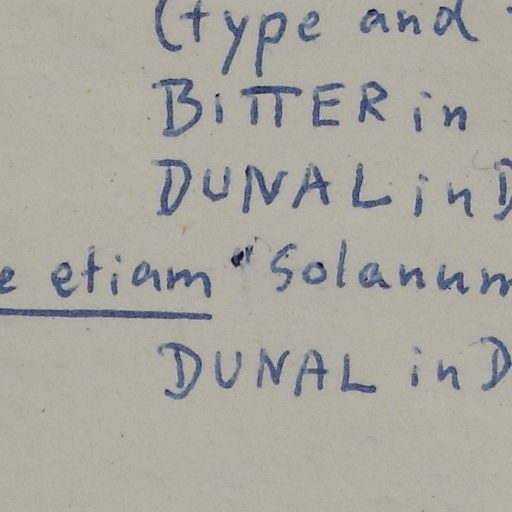 (type and
BITTER in
DUNAL in D
e etiam "Solanum
DUNAL in D